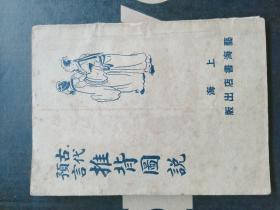 古代
預言
推背圖說
上海
藝海書店出版